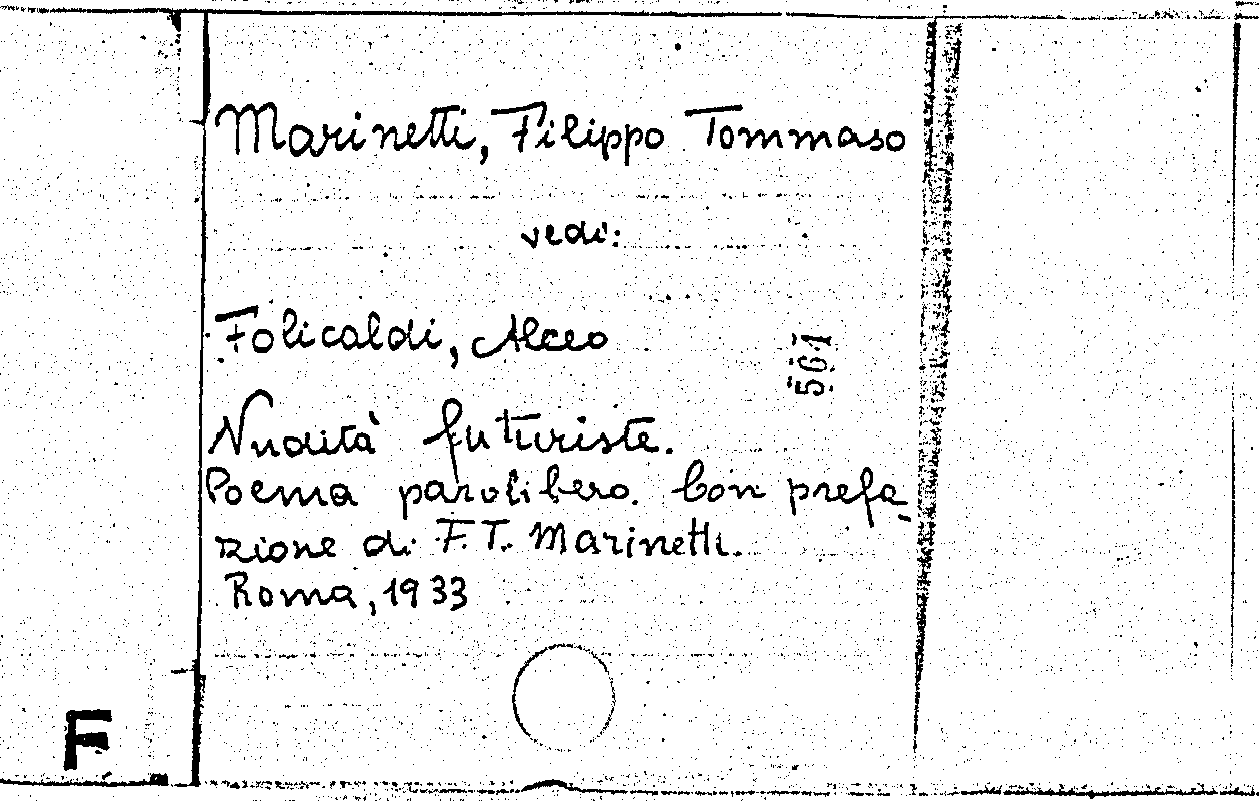 Marinetti, Filippo Tommaso
vedi:
Folicaldi, Alceo
561
Nudità futuriste.
Poema parolibero. Con prefa-
zione di F.T. Marinetti.
Roma, 1933
F